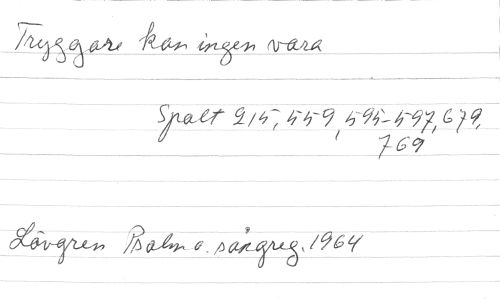 Tryggare kan ingen vara
Spalt 215, 559, 595-597, 679,
769
Lövgren Psalm o. sångreg. 1964